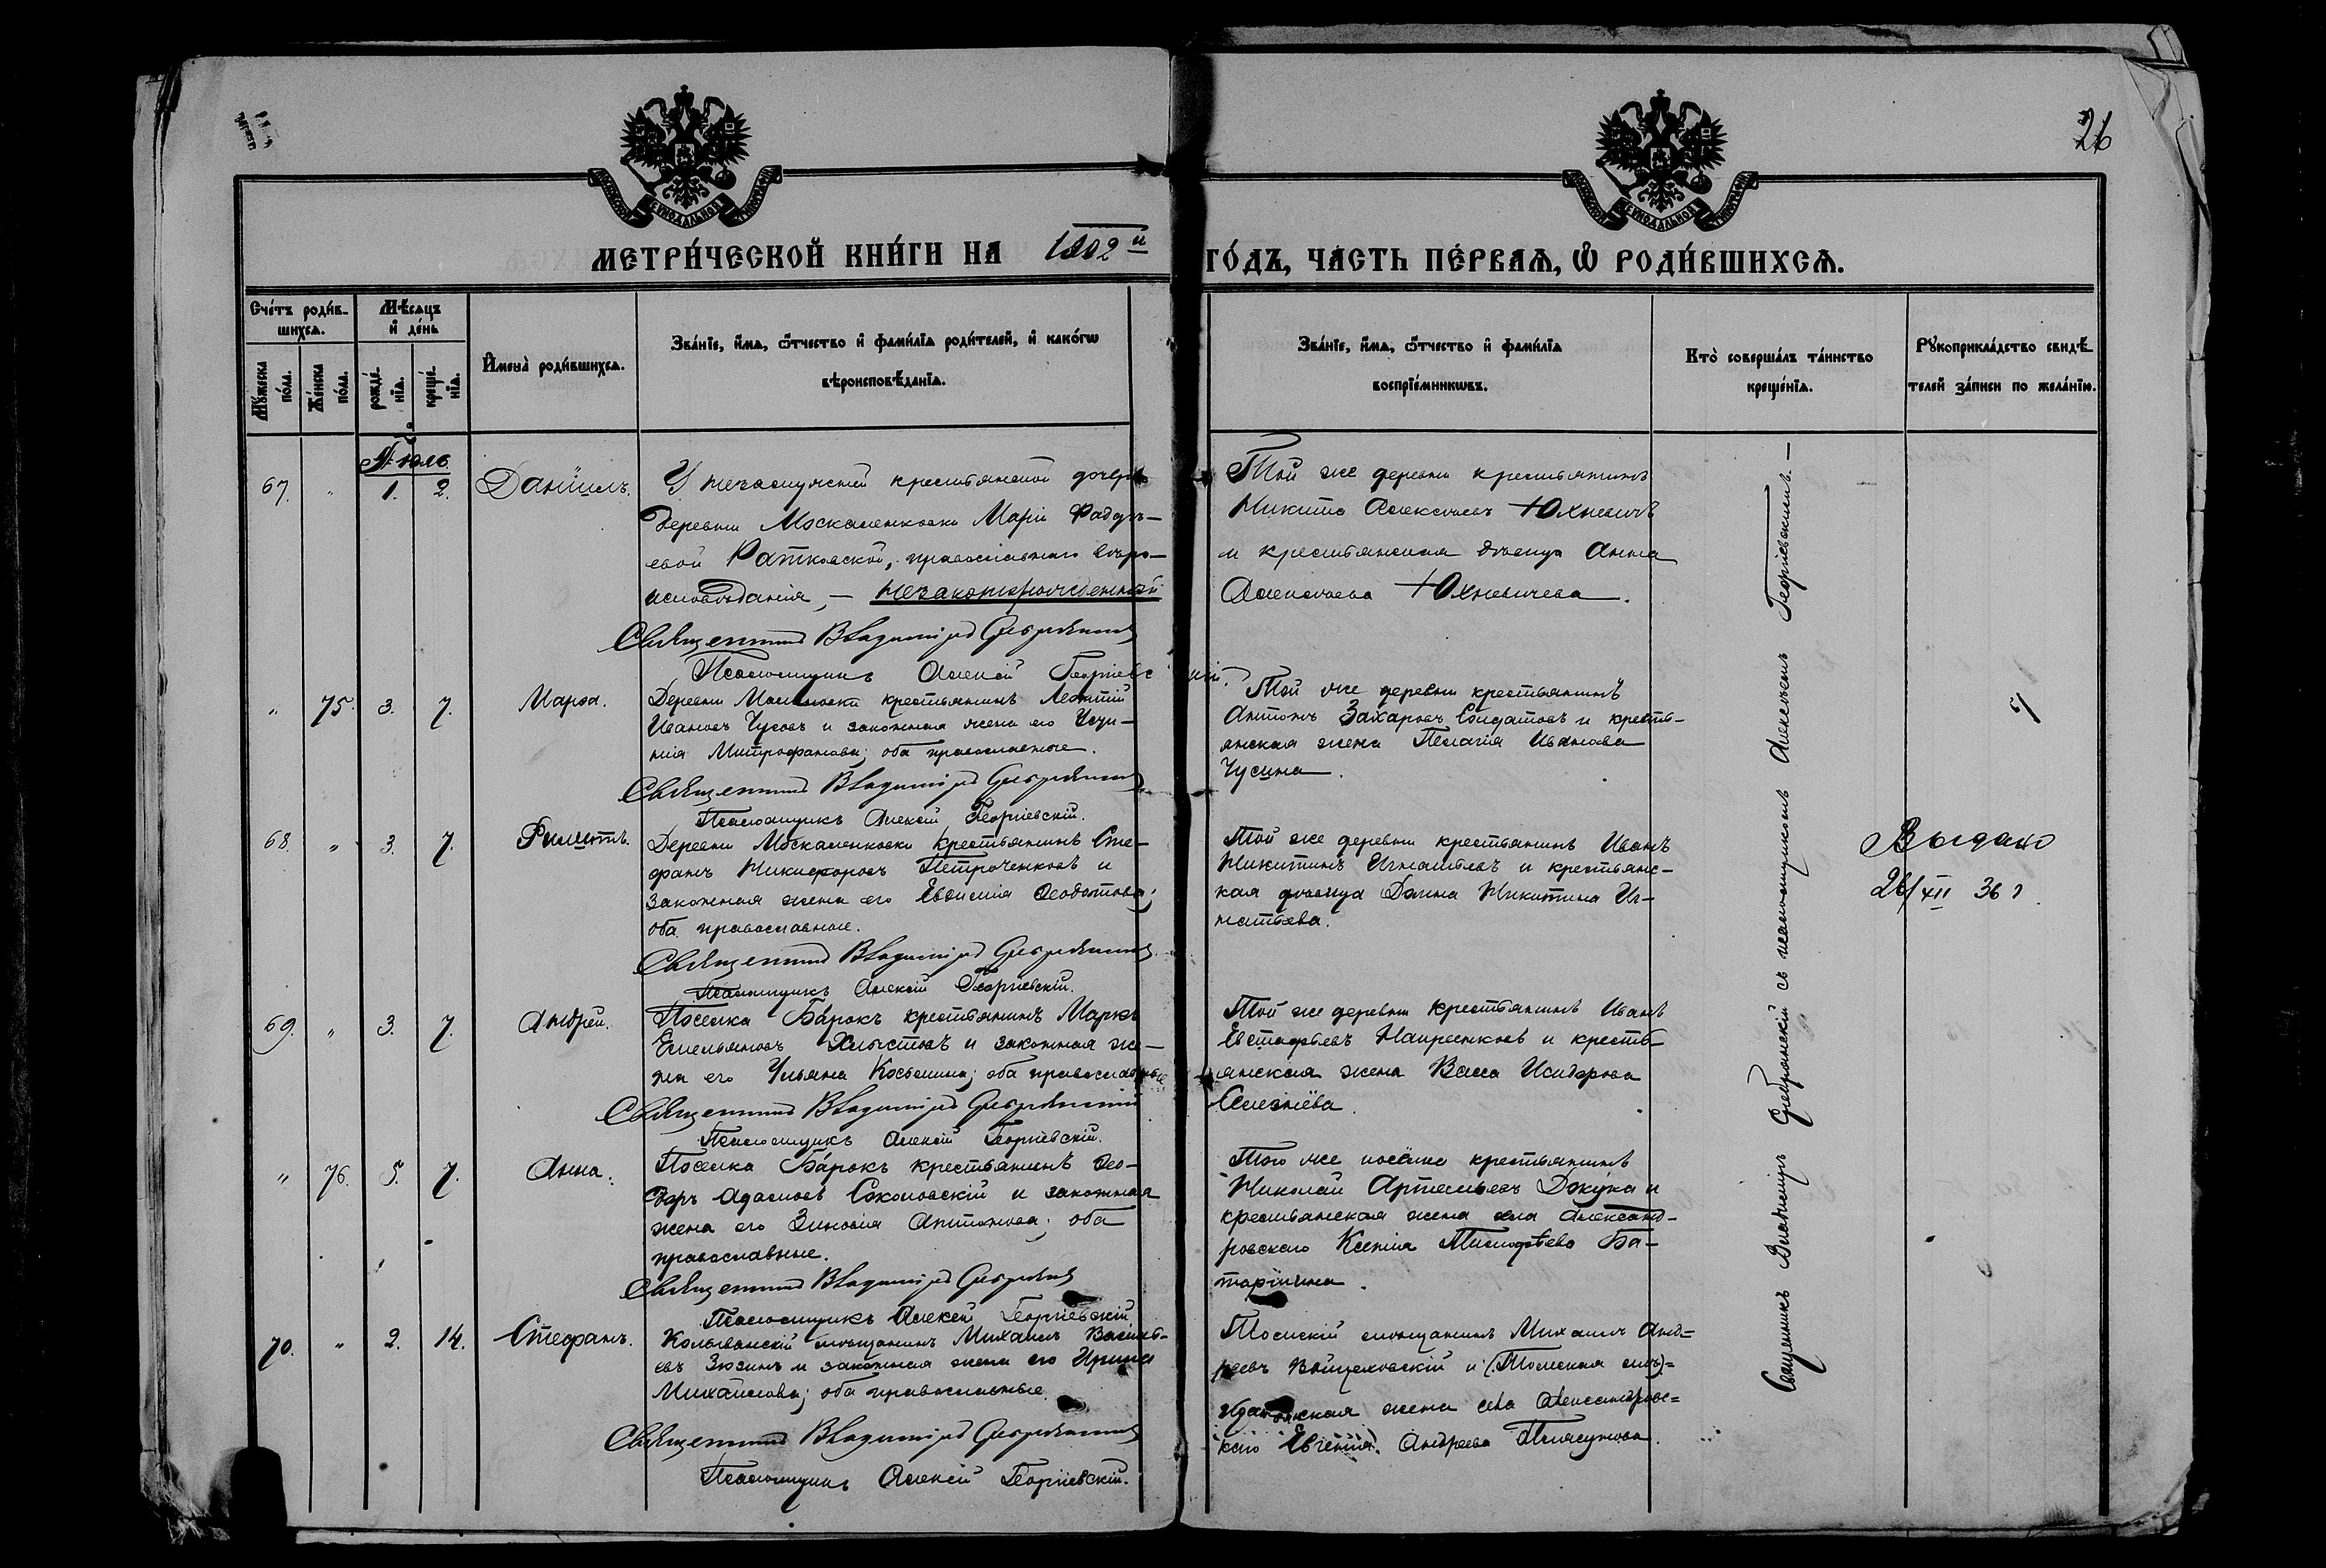 26
МЕТРИ́ЧЕСКОЙ КНИ́ГИ НА 1902й ГО́ДЪ, ЧАСТЬ ПЕ́РВАѦ, Ѡ҆ РОДИ́ВШИХСѦ.
Сче́тъ роди́в-
шихсѧ.
Мꙋ́жеска по́ла.
Же́нска по́ла.
Мѣ́сѧцъ
и҆ де́нь
рожде́-
нїѧ.
креще́-
нїѧ.
И҆мена̀ роди́вшихсѧ.
Зва́нїе, и҆́мѧ, ѻ҆́тчество и҆ фами́лїѧ роди́телей, и҆ како́гѡ
вѣроисповѣ́данїѧ.
Зва́нїе, и҆́мѧ, ѻ҆́тчество и҆ фами́лїѧ
воспрїе́мникѡвъ.
Кто̀ соверша́лъ та́инство
креще́нїѧ.
Рꙋкоприкла́дство свидѣ́-
телей за́писи по жела́нїю.
Іюль
67. " 1. 2. Даніилъ.
У незамужней крестьянской дочери
деревни Москаленковки Маріи Фадде-
евой Ратковской, православнаго вѣро-
исповѣданія, — незаконорожденный
Священникъ Владиміръ Серебрянскій
Псаломщикъ Алексій Георгіевскій.
Той же деревни крестьянинъ
Никита Алексѣевъ Юхневичъ
и крестьянская дѣвица Анна
Алексѣева Юхневичева.
" 75. 3. 7. Марѳа.
Деревни крестьянинъ Леонтій
Ивановъ Чусовъ и законная жена его Усти-
нія Митрофанова; оба православные.
Священникъ Владиміръ Серебрянскій
Псаломщикъ Алексій Георгіевскій.
Той же деревни крестьянинъ
Антонъ Захаровъ Солдатовъ и кресть-
янская жена Пелагія Иванова
Чусина.
68. " 3. 7. Филиппъ.
Деревни Москаленковки крестьянинъ Сте-
фанъ Никифоровъ Петроченковъ и
законная жена его Евѳимія Ѳеодотова;
оба православные.
Священникъ Владиміръ Серебрянскій
Псаломщикъ Алексій Георгіевскій.
Той же деревни крестьянинъ Иванъ
Никитинъ Игнатьевъ и крестьянс-
кая дѣвица Домна Никитина Иг-
натьева.
Выдано
26/XII 36 г.
69. " 3. 7. Андрей.
Поселка Ба́рокъ крестьянинъ Маркъ
Емельяновъ Хлыстовъ и законная же-
на его Ульяна Косьмина; оба православные
Священникъ Владиміръ Серебрянскій
Псаломщикъ Алексій Георгіевскій.
Той же деревни крестьянинъ Иванъ
Евстафьевъ и кресть-
янская жена Васса Исидорова
Селезнёва.
" 76. 5. 7. Анна.
Поселка Ба́рокъ крестьянинъ Ѳео-
доръ Адамовъ Соколовскій и законная
жена его Зиновія Антонова; оба
православные.
Священникъ Владиміръ Серебрянскій
Псаломщикъ Алексій Георгіевскій
Того же посёлка крестьянинъ
Николай Артемьевъ Докука и
крестьянская жена села Александ-
ровскаго Ксенія Тимофѣева Ба-
70. " 2. 14. Стефанъ.
Колыванскій мѣщанинъ Михаилъ Василь-
евъ Зюзинъ и законная жена его Ирина
Михайлова; оба православные.
Священникъ Владиміръ Серебрянскій
Псаломщикъ Алексій Георгіевскій.
Томскій мѣщанинъ Михаилъ Анд=
реевъ Войцеховскій и (Томская
жена села Александровс=
каго Евгенія) Андреева Плясунова.
Священникъ Владиміръ Серебрянскій съ псаломщикомъ Алексѣемъ Георгіевскимъ. —